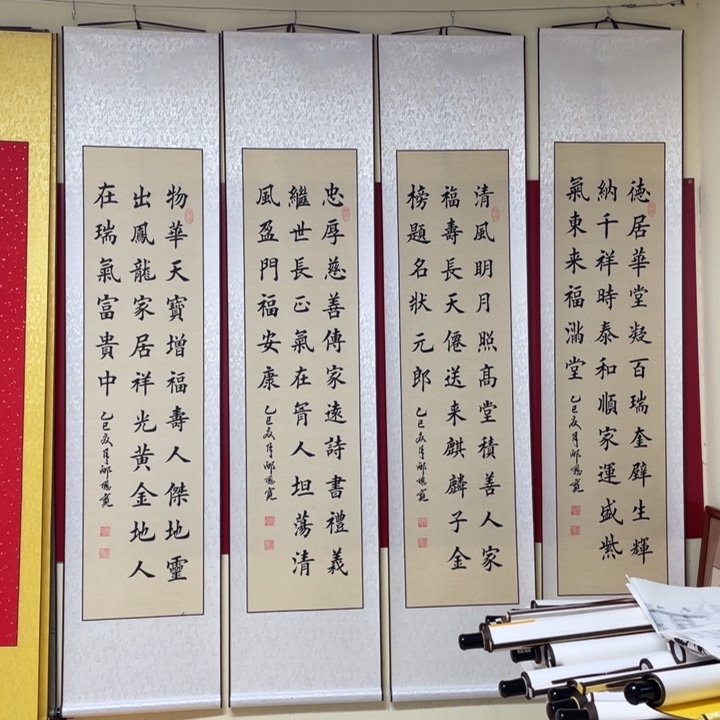 徳居華堂凝百瑞奎璧生輝
納千祥時泰和順家運盛紫
氣東来福滿堂
乙巳 月
清風明月照髙堂積善人家
福壽長天僊送来麒麟子金
榜題名狀元郎
乙巳 月
忠厚慈善傳家遠詩書禮義
繼世長正氣在胷人坦蕩清
風盈門福安康
乙巳 月
物華天寶增福壽人傑地靈
出鳳龍家居祥光黄金地人
在瑞氣富貴中
乙巳 月